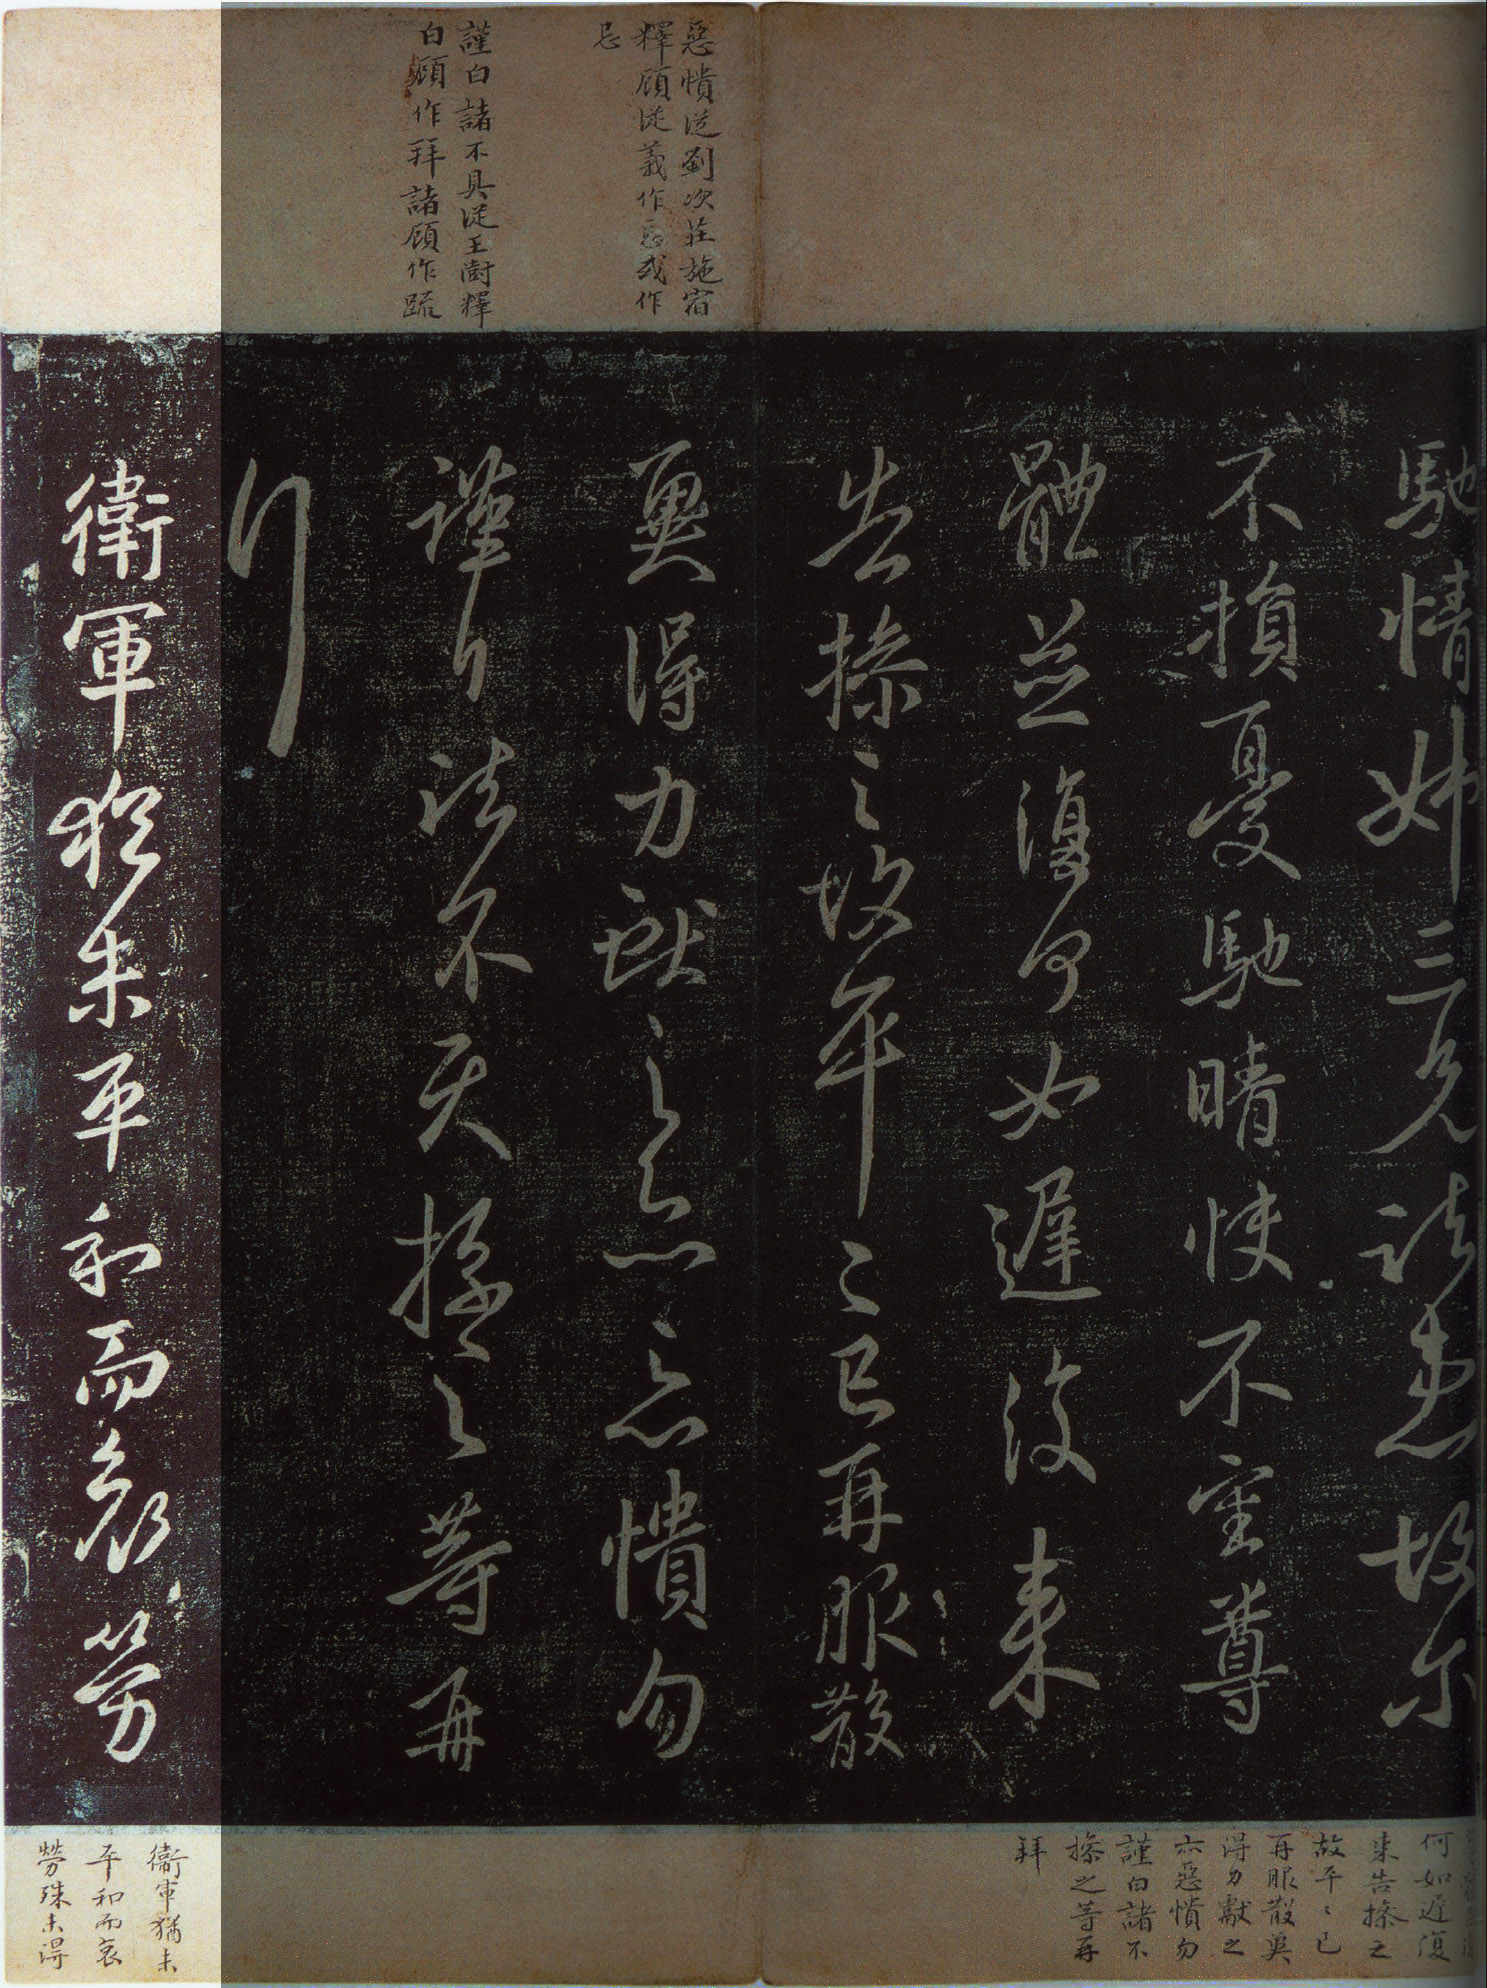 惡憒從劉次莊施宿
釋顧從義作忘或作
忌
謹白諸不具從王澍釋
白顧作拜諸顧作疏
馳情姊三兄諸患故爾
不損憂馳晴快不審尊
體並復何如遲復來
告操之故平平已再服散
冀得力獻之亦惡憒勿
謹白諸不具操之等再
拜
衛軍猶未平和而哀勞
何如遲復
來告操之
故平〻已
再服散冀
得力獻之
亦惡憒勿
謹白諸不
操之等再
拜
衞軍猶未
平和而哀
勞殊未得